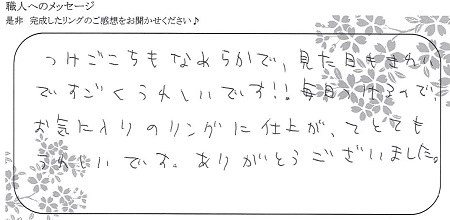 職人へのメッセージ
是非 完成したリングのご感想をお聞かせください♪
つけごこちもなめらかで、見た目もきれい
ですごくうれしいです!!毎日つけるので、
お気に入りのリングに仕上が、てとても
うれしいです。ありがとうございました。